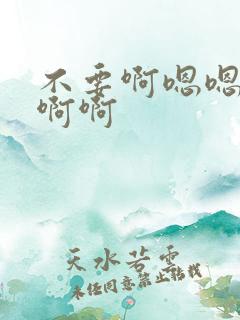 不要啊嗯嗯
啊啊
天水若云
未经同意禁止转载